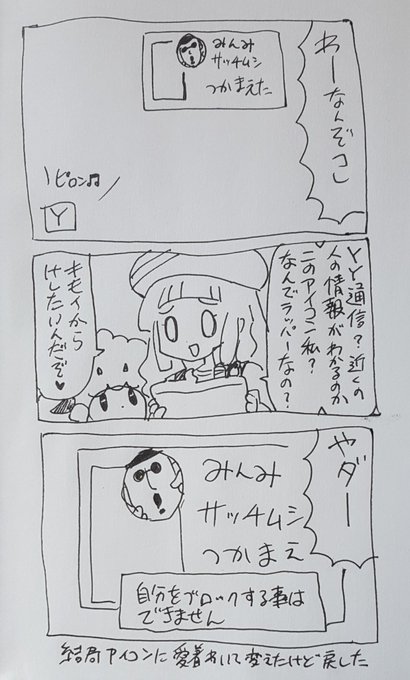 わーなんぞコレ
みんみ
サッチムシ
つかまえた
ピロン♫
Y
YY通信?近くの
人の情報がわかるのか
このアイコン私?
なんでラッパーなの?
キモイから
けしたいんだぞ♥
やダー
みんみ
サッチムシ
つかまえ
自分をブロックする事は
できません
結局アイコンに愛着わいて変えたけど戻した